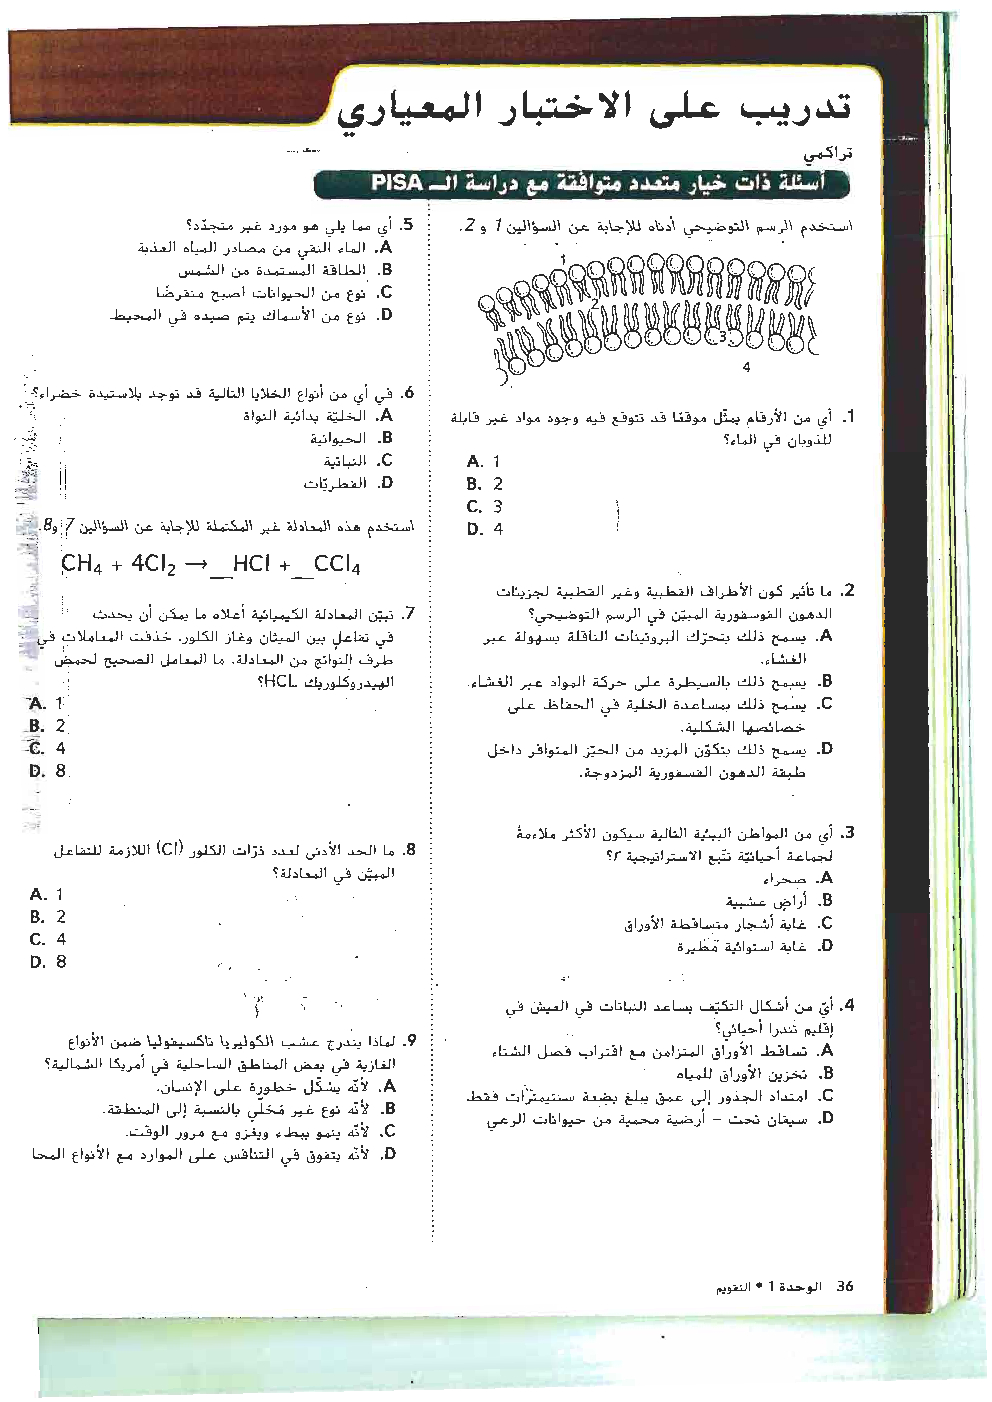 تدريب على الاختبار المعياري
تراكمي
أسئلة ذات خيار متعدد متوافقة مع دراسة الـ PISA
استخدم الرسم التوضيحي أدناه للإجابة عن السؤالين 1 و 2.
1
2
3
4
1. أي من الأرقام يمثّل موقعًا قد تتوقع فيه وجود مواد غير قابلة
للذوبان في الماء؟
A. 1
B. 2
C. 3
D. 4
2. ما تأثير كون الأطراف القطبية وغير القطبية لجزيئات
الدهون الفوسفورية المبيّن في الرسم التوضيحي؟
A. يسمح ذلك بتحرّك البروتينات الناقلة بسهولة عبر
الغشاء.
B. يسمح ذلك بالسيطرة على حركة المواد عبر الغشاء.
C. يسمح ذلك بمساعدة الخلية في الحفاظ على
خصائصها الشكلية.
D. يسمح ذلك بتكوّن المزيد من الحيّز المتوافر داخل
طبقة الدهون الفسفورية المزدوجة.
3. أي من المواطن البيئية التالية سيكون الأكثر ملاءمةً
لجماعة أحيائيّة تتبع الاستراتيجية r؟
A. صحراء
B. أراضٍ عشبية
C. غابة أشجار متساقطة الأوراق
D. غابة استوائية مَطيرة
4. أيّ من أشكال التكيّف يساعد النباتات في العيش في
إقليم تندرا أحيائي؟
A. تساقط الأوراق المتزامن مع اقتراب فصل الشتاء
B. تخزين الأوراق للمياه
C. امتداد الجذور إلى عمق يبلغ بضعة سنتيمترات فقط
D. سيقان تحت – أرضية محمية من حيوانات الرعي
5. أي مما يلي هو مورد غير متجدّد؟
A. الماء النقي من مصادر المياه العذبة
B. الطاقة المستمدة من الشمس
C. نوع من الحيوانات أصبح منقرضًا
D. نوع من الأسماك يتم صيده في المحيط
6. في أي من أنواع الخلايا التالية قد توجد بلاستيدة خضراء؟
A. الخليّة بدائية النواة
B. الحيوانية
C. النباتية
D. الفطريّات
استخدم هذه المعادلة غير المكتملة للإجابة عن السؤالين 7 و8.
CH4 + 4Cl2 → __HCl + __CCl4
7. تبيّن المعادلة الكيميائية أعلاه ما يمكن أن يحدث
في تفاعل بين الميثان وغاز الكلور. حُذفت المعاملات في
طرف النواتج من المعادلة. ما المعامل الصحيح لحمض
الهيدروكلوريك HCl؟
A. 1
B. 2
C. 4
D. 8
8. ما الحد الأدنى لعدد ذرّات الكلور (Cl) اللازمة للتفاعل
المبيّن في المعادلة؟
A. 1
B. 2
C. 4
D. 8
9. لماذا يندرج عشب الكوليربا تاكسيفوليا ضمن الأنواع
الغازية في بعض المناطق الساحلية في أمريكا الشمالية؟
A. لأنّه يشكّل خطورة على الإنسان.
B. لأنّه نوع غير مَحَلّي بالنسبة إلى المنطقة.
C. لأنّه ينمو ببطء ويغزو مع مرور الوقت.
D. لأنّه يتفوق في التنافس على الموارد مع الأنواع المحا
36 الوحدة 1 • التقويم